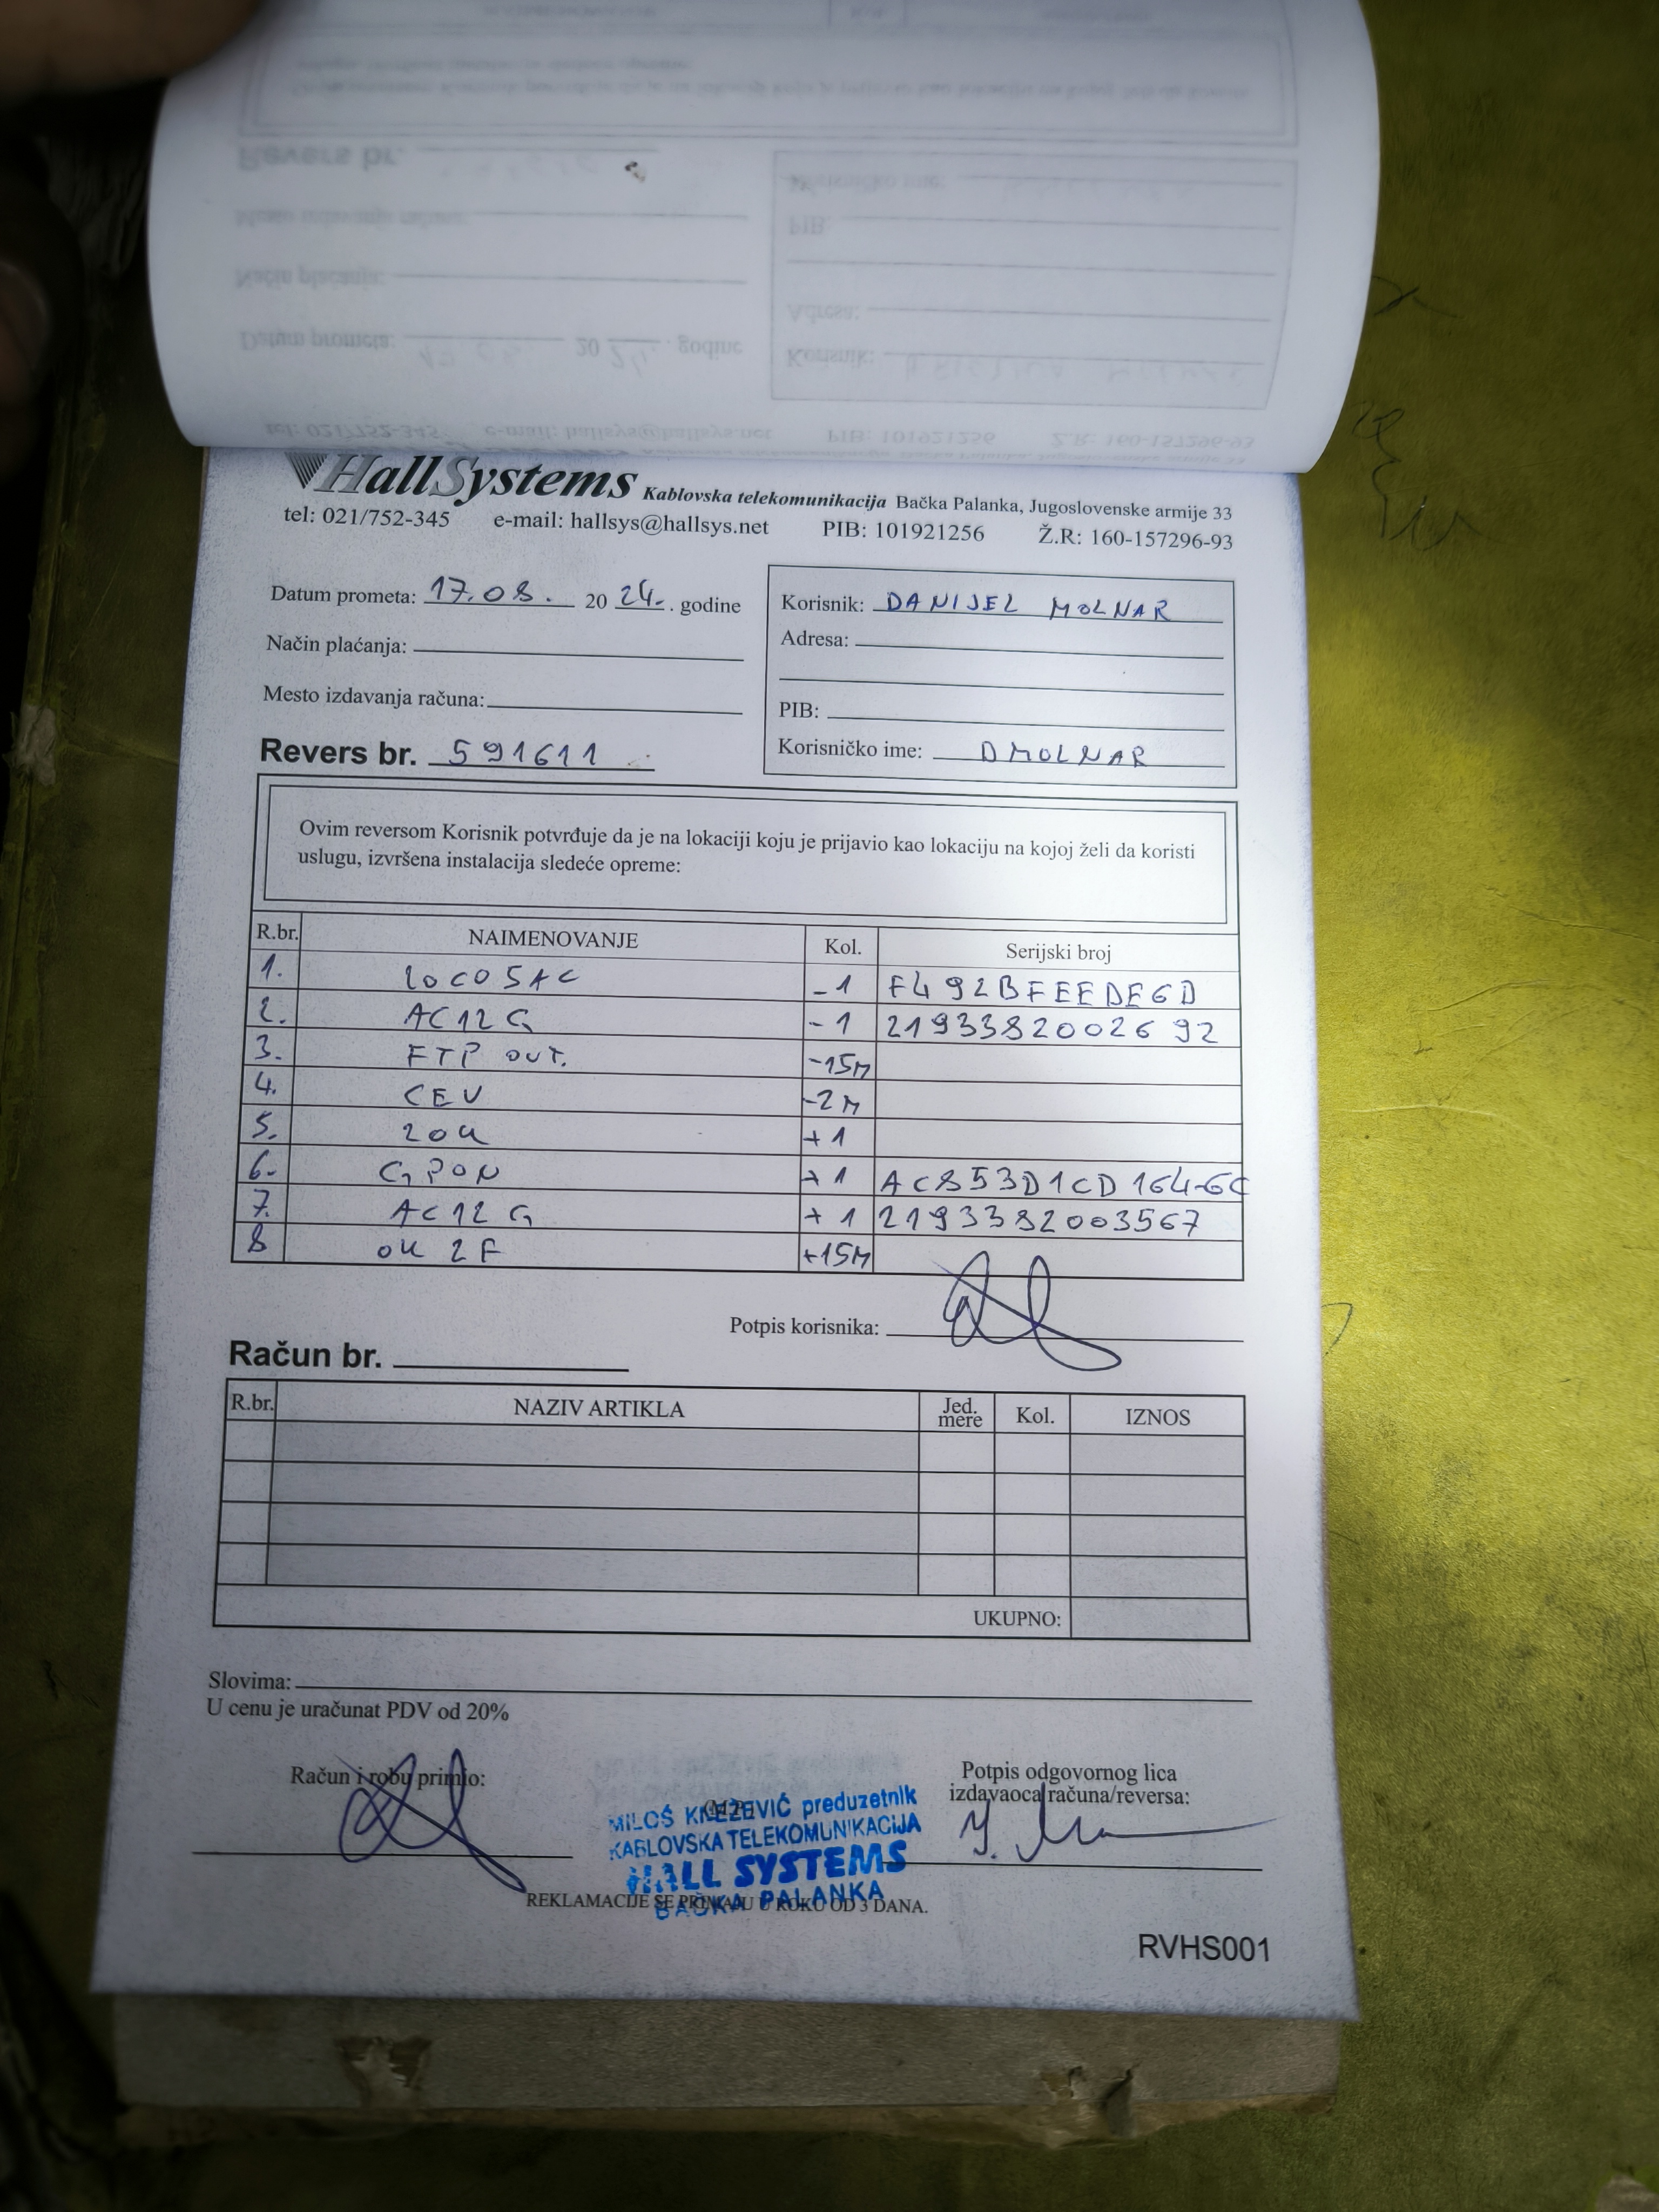 HallSystems Kablovska telekomunikacija Bačka Palanka, Jugoslovenske armije 33
tel: 021/752-345 e-mail: hallsys@hallsys.net PIB: 101921256 Ž.R: 160-157296-93
Datum prometa: 17.08. 20 24. . godine
Način plaćanja:
Mesto izdavanja računa:
Revers br. 591611
Korisnik: DANIJEL MOLNAR
Adresa:
PIB:
Korisničko ime: DMOLNAR
Ovim reversom Korisnik potvrđuje da je na lokaciji koju je prijavio kao lokaciju na kojoj želi da koristi
uslugu, izvršena instalacija sledeće opreme:
R.br. NAIMENOVANJE Kol. Serijski broj
1. LOCO5AC -1 F492BFEEDE6D
2. AC12G -1 2193382002692
3. FTP OUT. -15M
4. CEV -2M
5. ZOK +1
6. GPON +1 AC853D1CD164-6C
7. AC12G +1 2193382003567
8 OK 2F +15M
Potpis korisnika:
Račun br.
R.br. NAZIV ARTIKLA Jed. mere Kol. IZNOS
UKUPNO:
Slovima:
U cenu je uračunat PDV od 20%
Račun i robu primio:
Potpis odgovornog lica
izdavaoca računa/reversa:
MILOŠ KNEŽEVIĆ preduzetnik
KABLOVSKA TELEKOMUNIKACIJA
HALL SYSTEMS
BAČKA PALANKA
REKLAMACIJE SE PRIMAJU U ROKU OD 3 DANA.
RVHS001